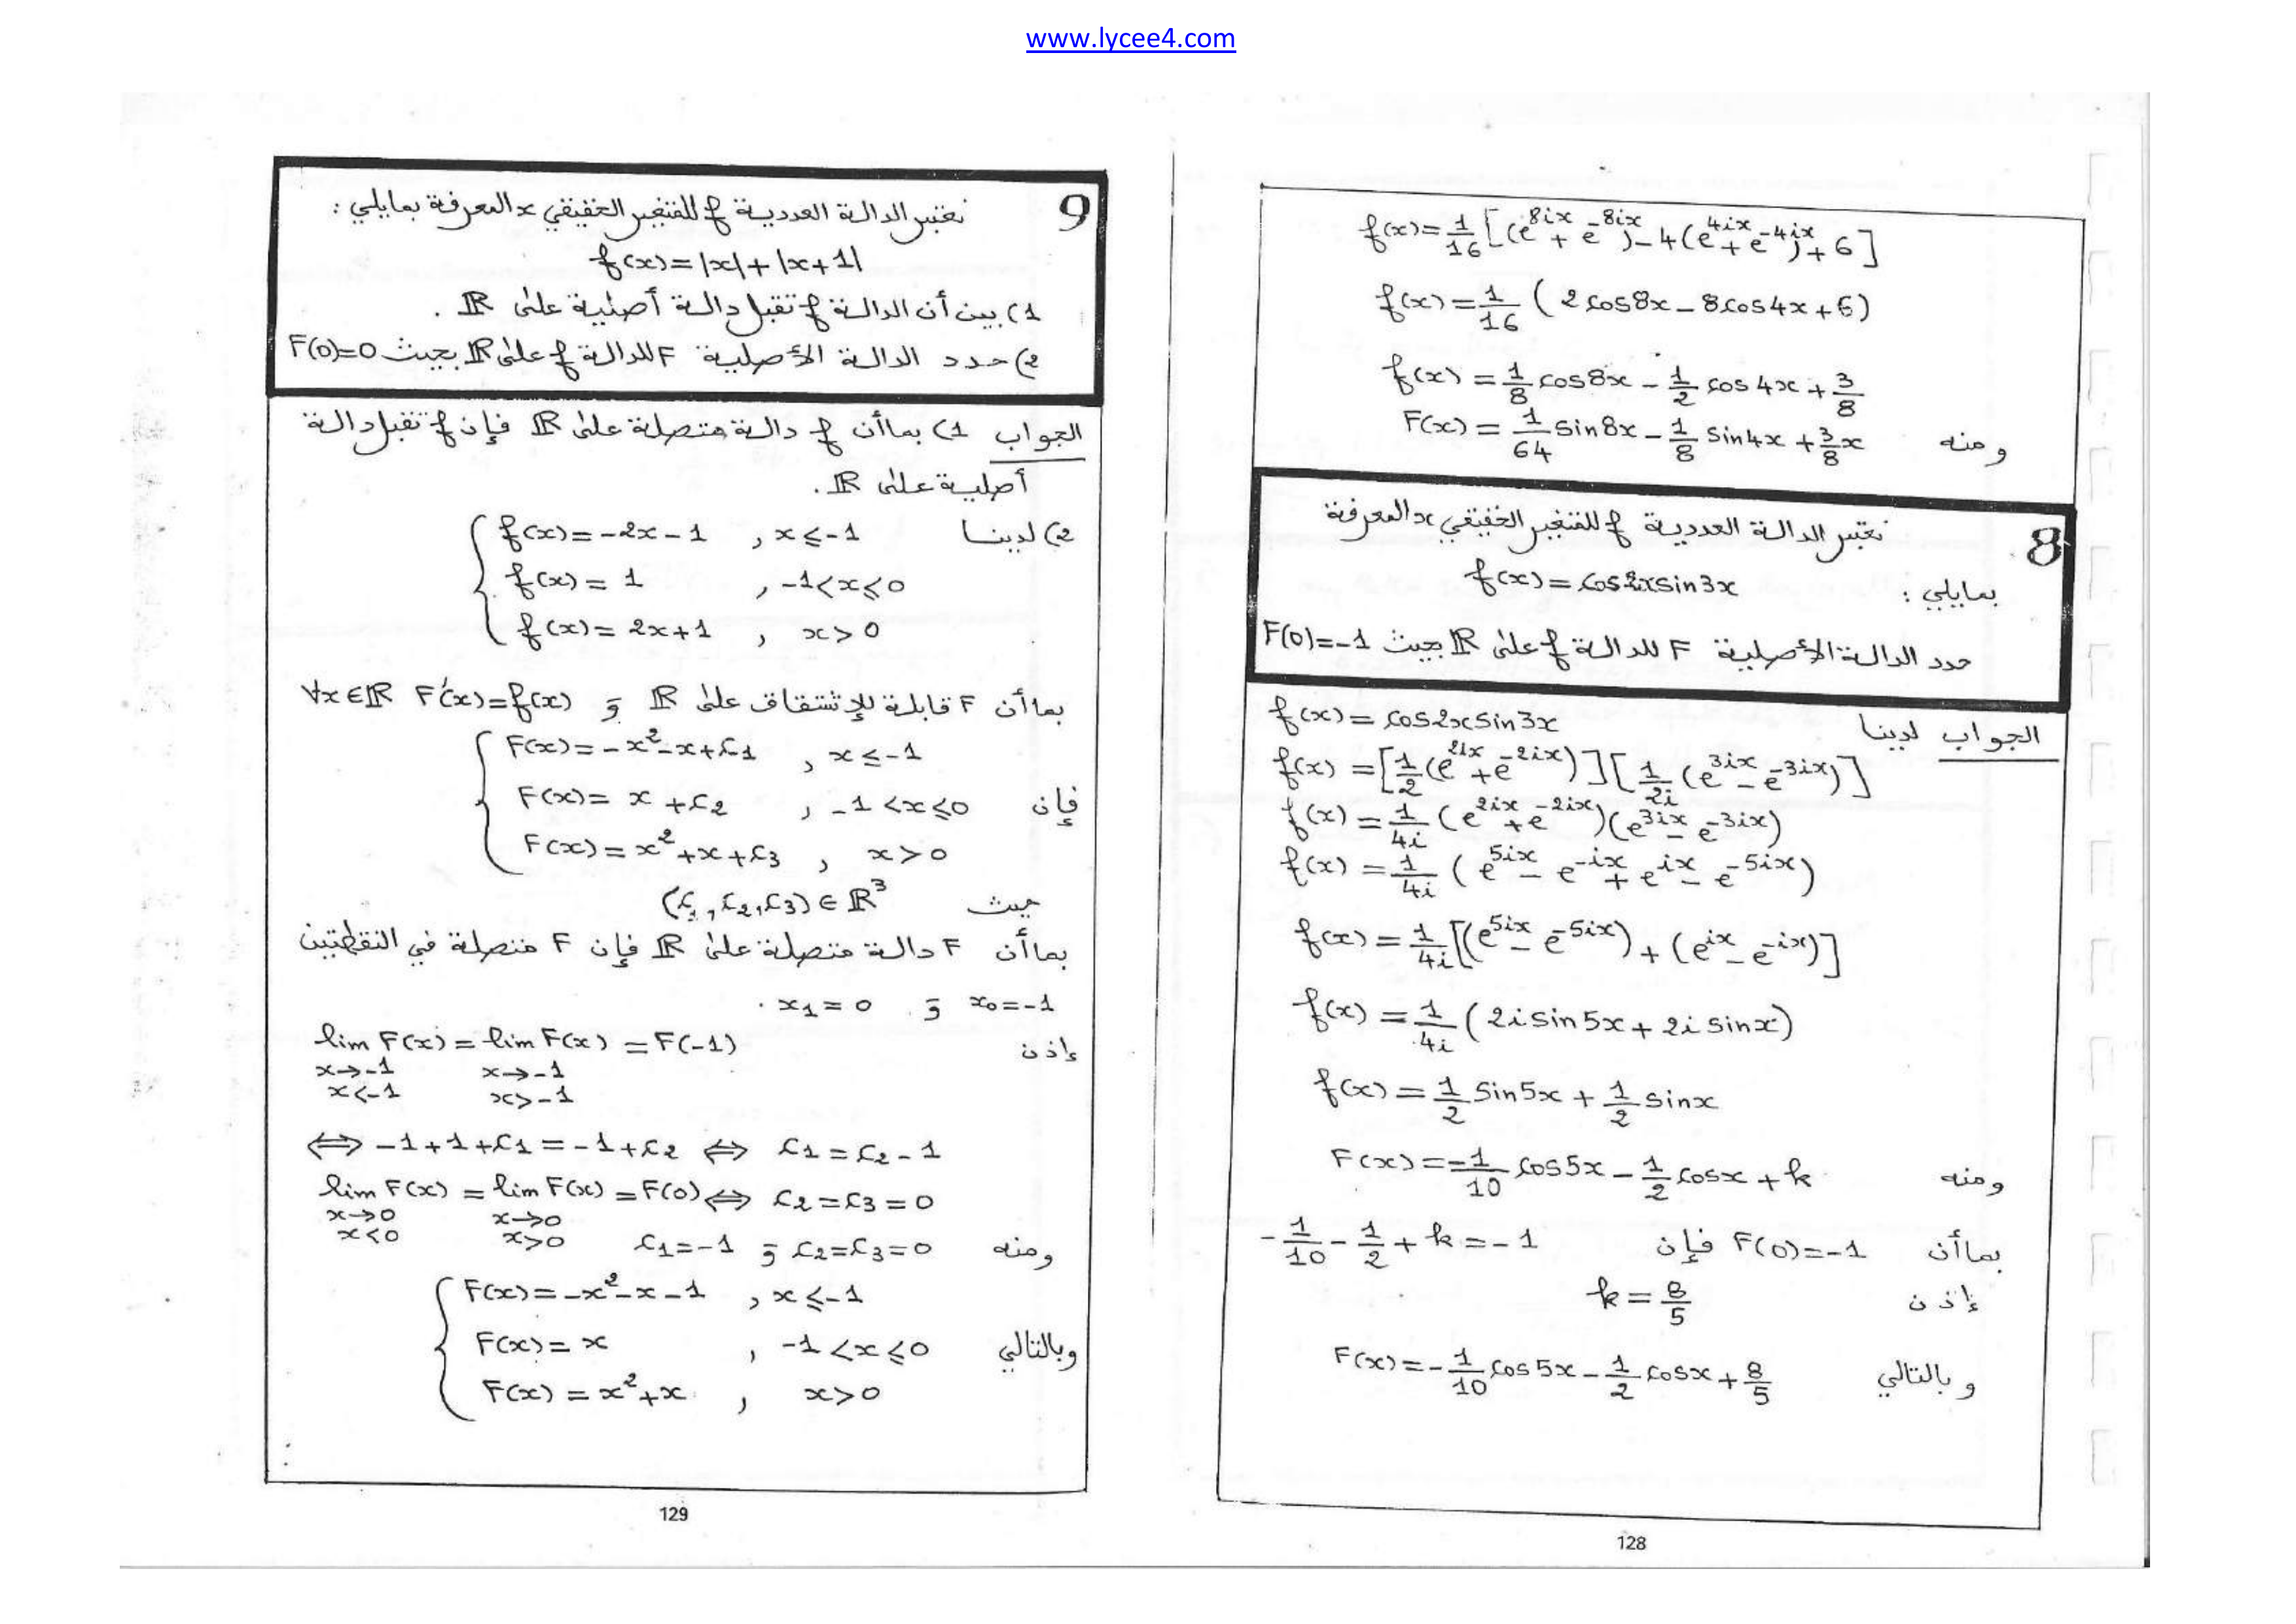 www.lycee4.com
f(x)=1/16[(e^{8ix}+e^{-8ix})-4(e^{4ix}+e^{-4ix})+6]
f(x)=1/16(2cos8x-8cos4x+6)
f(x)=1/8 cos8x-1/2 cos4x+3/8
ومنه F(x)=1/64 sin8x-1/8 sin4x+3/8 x
8 نعتبر الدالة العددية f للمتغير الحقيقي x المعرفة
بمايلي : f(x)=cos2xsin3x
حدد الدالة الأصلية F للدالة f على ℝ بحيث F(0)=-1
الجواب لدينا f(x)=cos2xsin3x
f(x)=[1/2(e^{2ix}+e^{-2ix})][1/2i(e^{3ix}-e^{-3ix})]
f(x)=1/4i(e^{2ix}+e^{-2ix})(e^{3ix}-e^{-3ix})
f(x)=1/4i(e^{5ix}-e^{-ix}+e^{ix}-e^{-5ix})
f(x)=1/4i[(e^{5ix}-e^{-5ix})+(e^{ix}-e^{-ix})]
f(x)=1/4i(2isin5x+2isinx)
f(x)=1/2 sin5x+1/2 sinx
ومنه F(x)=-1/10 cos5x-1/2 cosx+k
بماأن F(0)=-1 فإن -1/10-1/2+k=-1
إذن k=8/5
وبالتالي F(x)=-1/10 cos5x-1/2 cosx+8/5
128
9 نعتبر الدالة العددية f للمتغير الحقيقي x المعرفة بمايلي :
f(x)=|x|+|x+1|
1) بين أن الدالة f تقبل دالة أصلية على ℝ .
2) حدد الدالة الأصلية F للدالة f على ℝ بحيث F(0)=0
الجواب 1) بماأن f دالة متصلة على ℝ فإن f تقبل دالة
أصلية على ℝ.
2) لدينا f(x)=-2x-1 , x≤-1
f(x)=1 , -1<x≤0
f(x)=2x+1 , x>0
بماأن F قابلة للإشتقاق على ℝ و ∀x∈ℝ F'(x)=f(x)
F(x)=-x²-x+c₁ , x≤-1
فإن F(x)=x+c₂ , -1<x≤0
F(x)=x²+x+c₃ , x>0
حيث (c₁,c₂,c₃)∈ℝ³
بماأن F دالة متصلة على ℝ فإن F متصلة في النقطتين
x₀=-1 و x₁=0 .
إذن lim F(x)=lim F(x)=F(-1)
x→-1 x→-1
x<-1 x>-1
⇔ -1+1+c₁=-1+c₂ ⇔ c₁=c₂-1
lim F(x)=lim F(x)=F(0) ⇔ c₂=c₃=0
x→0 x→0
x<0 x>0
ومنه c₂=c₃=0 و c₁=-1
F(x)=-x²-x-1 , x≤-1
وبالتالي F(x)=x , -1<x≤0
F(x)=x²+x , x>0
129